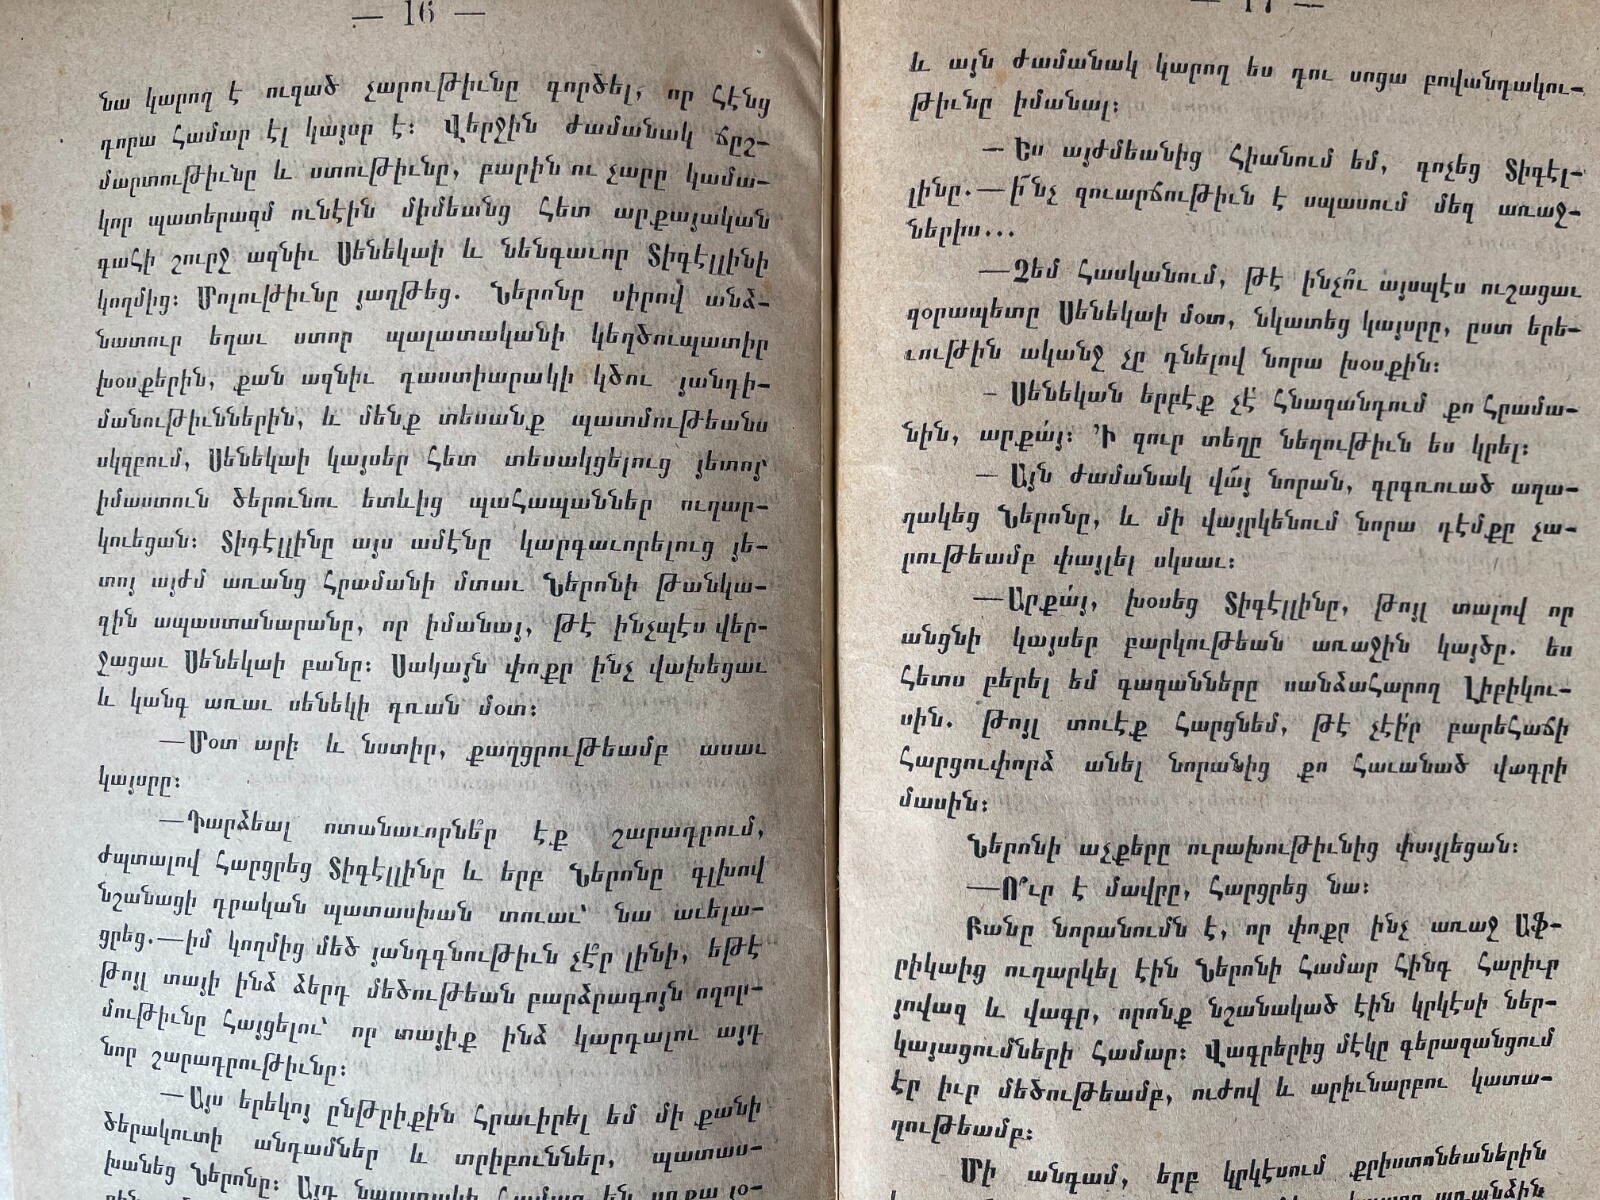 — 16 —
նա կարող է ուզած չարութիւնը գործել, որ հէնց
դորա համար էլ կայսր է։ Վերջին ժամանակ ճըշ-
մարտութիւնը և ստութիւնը, բարին ու չարը կամա-
կոր պատերազմ ունէին միմեանց հետ արքայական
գահի շուրջ ազնիւ Սենեկաի և նենգաւոր Տիգէլլինի
կողմից։ Մոլութիւնը յաղթեց. Ներոնը սիրով անձ-
նատուր եղաւ ստոր պալատականի կեղծուպատիր
խօսքերին, քան ազնիւ դաստիարակի կծու յանդի-
մանութիւններին, և մենք տեսանք պատմութեանս
սկզբում, Սենեկաի կայսեր հետ տեսակցելուց յետոյ
իմաստուն ծերունու ետևից պահապաններ ուղար-
կուեցան։ Տիգէլլինը այս ամէնը կարգաւորելուց յե-
տոյ այժմ առանց հրամանի մտաւ Ներոնի թանկա-
գին ապաստանարանը, որ իմանայ, թէ ինչպէս վեր-
ջացաւ Սենեկաի բանը։ Սակայն փոքր ինչ վախեցաւ
և կանգ առաւ սենեկի դռան մօտ։
—Մօտ արի և նստիր, քաղցրութեամբ ասաւ
կայսրը։
—Դարձեալ ոտանաւորնե՞ր էք շարադրում,
ժպտալով հարցրեց Տիգէլլինը և երբ Ներոնը գլխով
նշանացի դրական պատասխան տուաւ՝ նա աւելա-
ցրեց.—իմ կողմից մեծ յանդգնութիւն չէ՞ր լինի, եթէ
թոյլ տայի ինձ ձերդ մեծութեան բարձրագոյն ողոր-
մութիւնը հայցելու՝ որ տայիք ինձ կարդալու այդ
նոր շարադրութիւնը։
—Այս երեկոյ ընթրիքին հրաւիրել եմ մի քանի
ծերակուտի անդամներ և տրիբուններ, պատաս-
խանեց Ներոնը։ Այդ նպատակի համար են արքայօ-
— 17 —
և այն ժամանակ կարող ես դու սոցա բովանդակու-
թիւնը իմանալ։
— Ես այժմեանից հիանում եմ, գոչեց Տիգէլ-
լինը.—ի՜նչ զուարճութիւն է սպասում մեզ առաջ-
ներիս...
—Չեմ հասկանում, թէ ինչո՞ւ այսպէս ուշացաւ
զօրապետը Սենեկաի մօտ, նկատեց կայսրը, ըստ երե-
ւութին ականջ չը դնելով նորա խօսքին։
- Սենեկան երբէք չէ հնազանդում քո հրամա-
նին, արքա՛յ։ ՚Ի զուր տեղը նեղութիւն ես կրել։
— Այն ժամանակ վա՜յ նորան, գրգռուած աղա-
ղակեց Ներոնը, և մի վայրկենում նորա դէմքը չա-
րութեամբ փայլել սկսաւ։
—Արքա՛յ, խօսեց Տիգէլլինը, թոյլ տալով որ
անցնի կայսեր բարկութեան առաջին կայծը. ես
հետս բերել եմ գազանները սանձահարող Լիբիկու-
սին. թոյլ տուէք հարցնեմ, թէ չէի՞ր բարեհաճի
հարցուփորձ անել նորանից քո հաւանած վագրի
մասին։
Ներոնի աչքերը ուրախութիւնից փայլեցան։
—Ո՞ւր է մավրը, հարցրեց նա։
Բանը նորանումն է, որ փոքր ինչ առաջ Աֆ-
րիկաից ուղարկել էին Ներոնի համար հինգ հարիւր
յովազ և վագր, որոնք նշանակած էին կրկէսի ներ-
կայացումների համար։ Վագրերից մէկը գերազանցում
էր իւր մեծութեամբ, ուժով և արիւնարբու կատա-
ղութեամբ։
Մի անգամ, երբ կրկէսում քրիստոնեաներին